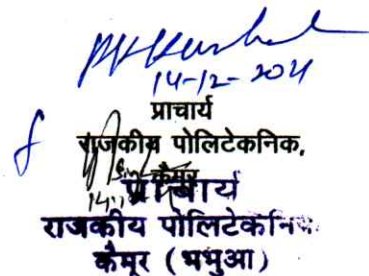 14-12-2021
प्राचार्य
राजकीय पोलिटेकनिक,
कैमूर
प्राचार्य
राजकीय पोलिटेकनिक
कैमूर (भभुआ)